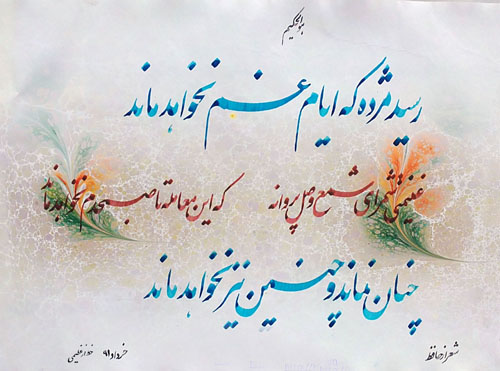 هوالحکیم
رسید مژده که ایام غم نخواهد ماند
غنیمتی شمر ای شمع وصل پروانه که این معامله تا صبحدم نخواهد ماند
چنان نماند و چنین نیز نخواهد ماند
شعر از حافظ
خرداد ۹۱